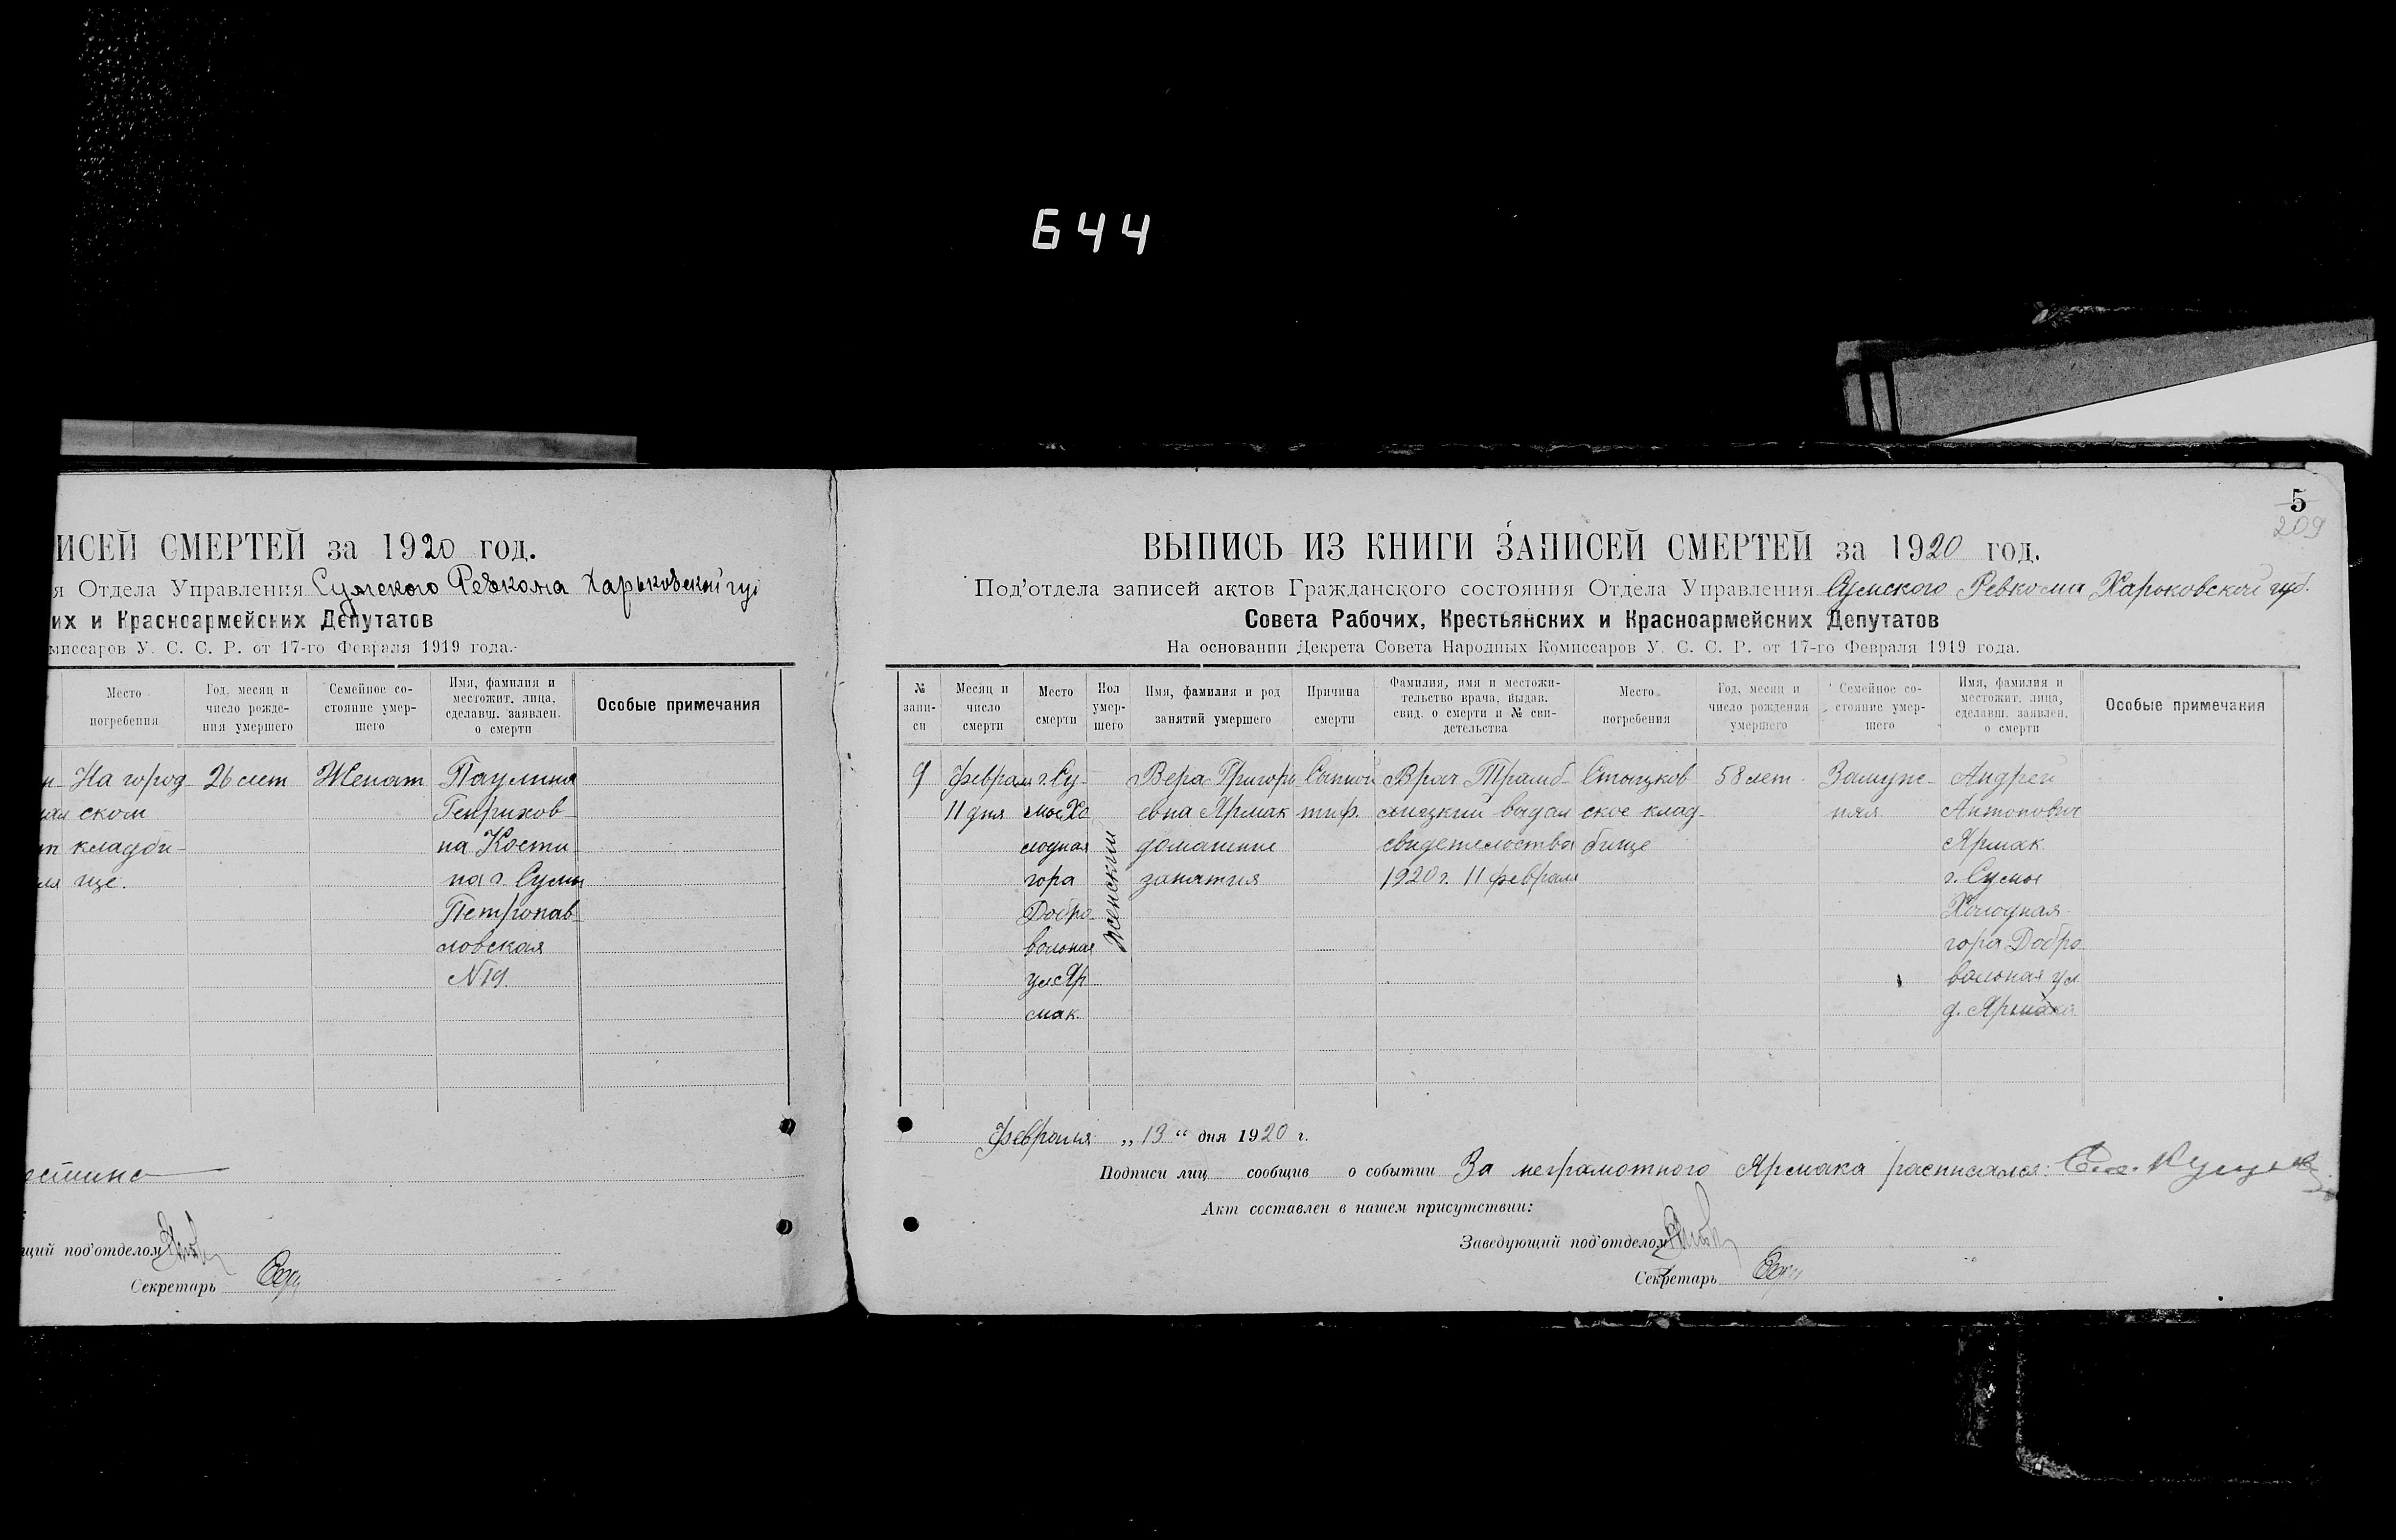 644
ИСЕЙ СМЕРТЕЙ за 1920 год.
я Отдела Управления Сумского Ревкома Харьковской гу
их и Красноармейских Депутатов
миссаров У. С. С. Р. от 17-го Февраля 1919 года.
Место погребения
Год, месяц и число рожде- ния умершего
Семейное со- стояние умер- шего
Имя, фамилия и местожит. лица, сделавш. заявлен. о смерти
Особые примечания
На город- 26 лет Женат Паулина
ском Генрихов-
кладби- на Кости-
ще. на г. Сумы
Петропав-
ловская
N 19.
щий под'отделом
Секретарь
5
209
ВЫПИСЬ ИЗ КНИГИ ЗАПИСЕЙ СМЕРТЕЙ за 1920 год.
Под'отдела записей актов Гражданского состояния Отдела Управления Сумского Ревкома Харьковской губ.
Совета Рабочих, Крестьянских и Красноармейских Депутатов
На основании Декрета Совета Народных Комиссаров У. С. С. Р. от 17-го Февраля 1919 года.
№ запи- си
Месяц и число смерти
Место смерти
Пол умер- шего
Имя, фамилия и род занятий умершего
Причина смерти
Фамилия, имя и местожи- тельство врача, выдав. свид. о смерти и № сви- детельства
Место погребения
Год, месяц и число рождения умершего
Семейное со- стояние умер- шего
Имя, фамилия и местожит. лица, сделавш. заявлен. о смерти
Особые примечания
9 Февраля г. Су- Вера Григорь- Сыпной Врач 58 лет Замуж- Андрей
11 дня мы Хо- евна Ярмак тиф. выдал ское клад- няя Антонович
лодная Женский домашние свидетельство бище Ярмак
гора занятия 1920 г. 11 февраля г. Сумы
Добро- Холодная
вольная гора Добро-
ул Яр- вольная ул
мак. д. Ярмака
Февраля „13“ дня 1920 г.
Подписи лиц сообщив о событии За неграмотного Ярмака расписался:
Акт составлен в нашем присутствии:
Заведующий под'отделом
Секретарь